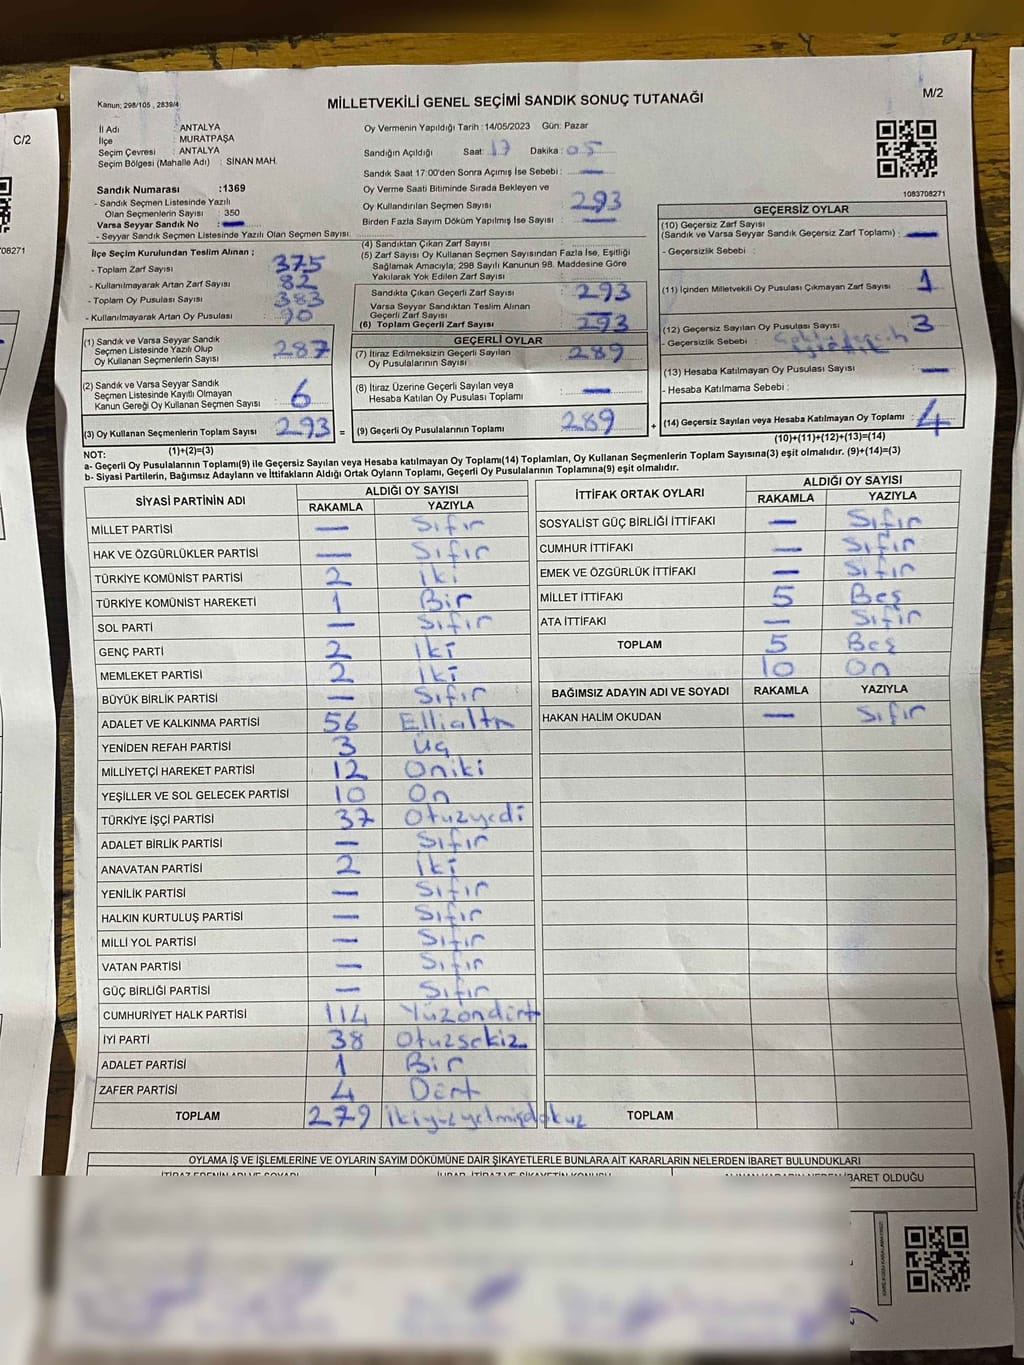 C/2
08271
Kanun; 298/105 , 2839/4
MİLLETVEKİLİ GENEL SEÇİMİ SANDIK SONUÇ TUTANAĞI
M/2
İl Adı : ANTALYA
İlçe : MURATPAŞA
Seçim Çevresi : ANTALYA
Seçim Bölgesi (Mahalle Adı) : SİNAN MAH.
Sandık Numarası :1369
- Sandık Seçmen Listesinde Yazılı
Olan Seçmenlerin Sayısı : 350
Varsa Seyyar Sandık No : —
- Seyyar Sandık Seçmen Listesinde Yazılı Olan Seçmen Sayısı:
Oy Vermenin Yapıldığı Tarih :14/05/2023 Gün: Pazar
Sandığın Açıldığı Saat: 17 Dakika : 05
Sandık Saat 17:00'den Sonra Açımış İse Sebebi : —
Oy Verme Saati Bitiminde Sırada Bekleyen ve
Oy Kullandırılan Seçmen Sayısı : 293
Birden Fazla Sayım Döküm Yapılmış İse Sayısı : —
1083708271
İlçe Seçim Kurulundan Teslim Alınan ;
- Toplam Zarf Sayısı : 375
- Kullanılmayarak Artan Zarf Sayısı : 82
- Toplam Oy Pusulası Sayısı : 383
- Kullanılmayarak Artan Oy Pusulası : 90
(1) Sandık ve Varsa Seyyar Sandık
Seçmen Listesinde Yazılı Olup
Oy Kullanan Seçmenlerin Sayısı : 287
(2) Sandık ve Varsa Seyyar Sandık
Seçmen Listesinde Kayıtlı Olmayan
Kanun Gereği Oy Kullanan Seçmen Sayısı : 6
(3) Oy Kullanan Seçmenlerin Toplam Sayısı : 293
(1)+(2)=(3)
(4) Sandıktan Çıkan Zarf Sayısı :
(5) Zarf Sayısı Oy Kullanan Seçmen Sayısından Fazla İse, Eşitliği
Sağlamak Amacıyla, 298 Sayılı Kanunun 98. Maddesine Göre
Yakılarak Yok Edilen Zarf Sayısı :
Sandıkta Çıkan Geçerli Zarf Sayısı : 293
Varsa Seyyar Sandıktan Teslim Alınan
Geçerli Zarf Sayısı : —
(6) Toplam Geçerli Zarf Sayısı : 293
GEÇERLİ OYLAR
(7) İtiraz Edilmeksizin Geçerli Sayılan
Oy Pusulalarının Sayısı : 289
(8) İtiraz Üzerine Geçerli Sayılan veya
Hesaba Katılan Oy Pusulası Toplamı : —
= (9) Geçerli Oy Pusulalarının Toplamı : 289 +
GEÇERSİZ OYLAR
(10) Geçersiz Zarf Sayısı
(Sandık ve Varsa Seyyar Sandık Geçersiz Zarf Toplamı) : —
- Geçersizlik Sebebi :
(11) İçinden Milletvekili Oy Pusulası Çıkmayan Zarf Sayısı : 1
(12) Geçersiz Sayılan Oy Pusulası Sayısı : 3
- Geçersizlik Sebebi :
(13) Hesaba Katılmayan Oy Pusulası Sayısı : —
- Hesaba Katılmama Sebebi :
(14) Geçersiz Sayılan veya Hesaba Katılmayan Oy Toplamı : 4
(10)+(11)+(12)+(13)=(14)
NOT:
a- Geçerli Oy Pusulalarının Toplamı(9) ile Geçersiz Sayılan veya Hesaba katılmayan Oy Toplamı(14) Toplamları, Oy Kullanan Seçmenlerin Toplam Sayısına(3) eşit olmalıdır. (9)+(14)=(3)
b- Siyasi Partilerin, Bağımsız Adayların ve İttifakların Aldığı Ortak Oyların Toplamı, Geçerli Oy Pusulalarının Toplamına(9) eşit olmalıdır.
SİYASİ PARTİNİN ADI ALDIĞI OY SAYISI
RAKAMLA YAZIYLA
MİLLET PARTİSİ — Sıfır
HAK VE ÖZGÜRLÜKLER PARTİSİ — Sıfır
TÜRKİYE KOMÜNİST PARTİSİ 2 İki
TÜRKİYE KOMÜNİST HAREKETİ 1 Bir
SOL PARTİ — Sıfır
GENÇ PARTİ 2 İki
MEMLEKET PARTİSİ 2 İki
BÜYÜK BİRLİK PARTİSİ — Sıfır
ADALET VE KALKINMA PARTİSİ 56 Ellialtı
YENİDEN REFAH PARTİSİ 3 Üç
MİLLİYETÇİ HAREKET PARTİSİ 12 Oniki
YEŞİLLER VE SOL GELECEK PARTİSİ 10 On
TÜRKİYE İŞÇİ PARTİSİ 37 Otuzyedi
ADALET BİRLİK PARTİSİ — Sıfır
ANAVATAN PARTİSİ 2 İki
YENİLİK PARTİSİ — Sıfır
HALKIN KURTULUŞ PARTİSİ — Sıfır
MİLLİ YOL PARTİSİ — Sıfır
VATAN PARTİSİ — Sıfır
GÜÇ BİRLİĞİ PARTİSİ — Sıfır
CUMHURİYET HALK PARTİSİ 114 Yüzondört
İYİ PARTİ 38 Otuzsekiz
ADALET PARTİSİ 1 Bir
ZAFER PARTİSİ 4 Dört
TOPLAM 279 İkiyüzyetmişdokuz
İTTİFAK ORTAK OYLARI ALDIĞI OY SAYISI
RAKAMLA YAZIYLA
SOSYALİST GÜÇ BİRLİĞİ İTTİFAKI — Sıfır
CUMHUR İTTİFAKI — Sıfır
EMEK VE ÖZGÜRLÜK İTTİFAKI — Sıfır
MİLLET İTTİFAKI 5 Beş
ATA İTTİFAKI — Sıfır
TOPLAM 5 Beş
10 On
BAĞIMSIZ ADAYIN ADI VE SOYADI RAKAMLA YAZIYLA
HAKAN HALİM OKUDAN — Sıfır
TOPLAM
OYLAMA İŞ VE İŞLEMLERİNE VE OYLARIN SAYIM DÖKÜMÜNE DAİR ŞİKAYETLERLE BUNLARA AİT KARARLARIN NELERDEN İBARET BULUNDUKLARI
İBARET OLDUĞU